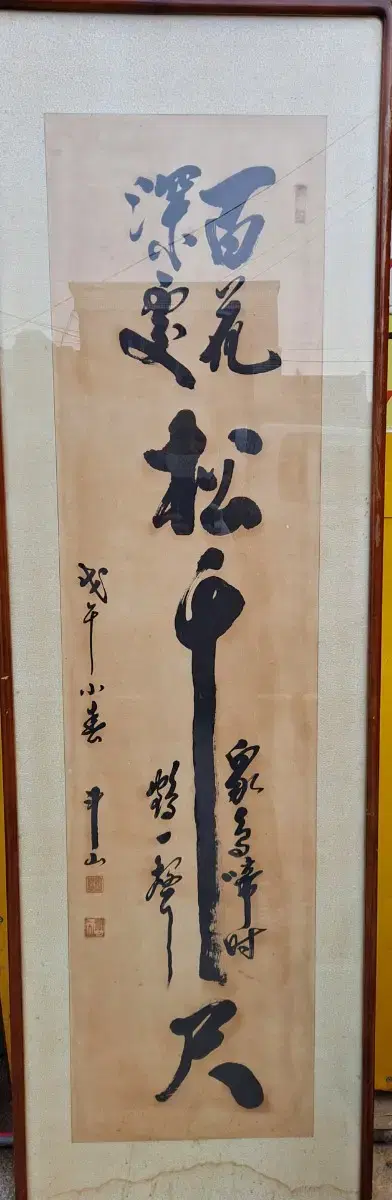 百花
深處
松千尺
眾鳥啼時
鶴一聲
戊午小春 斗山